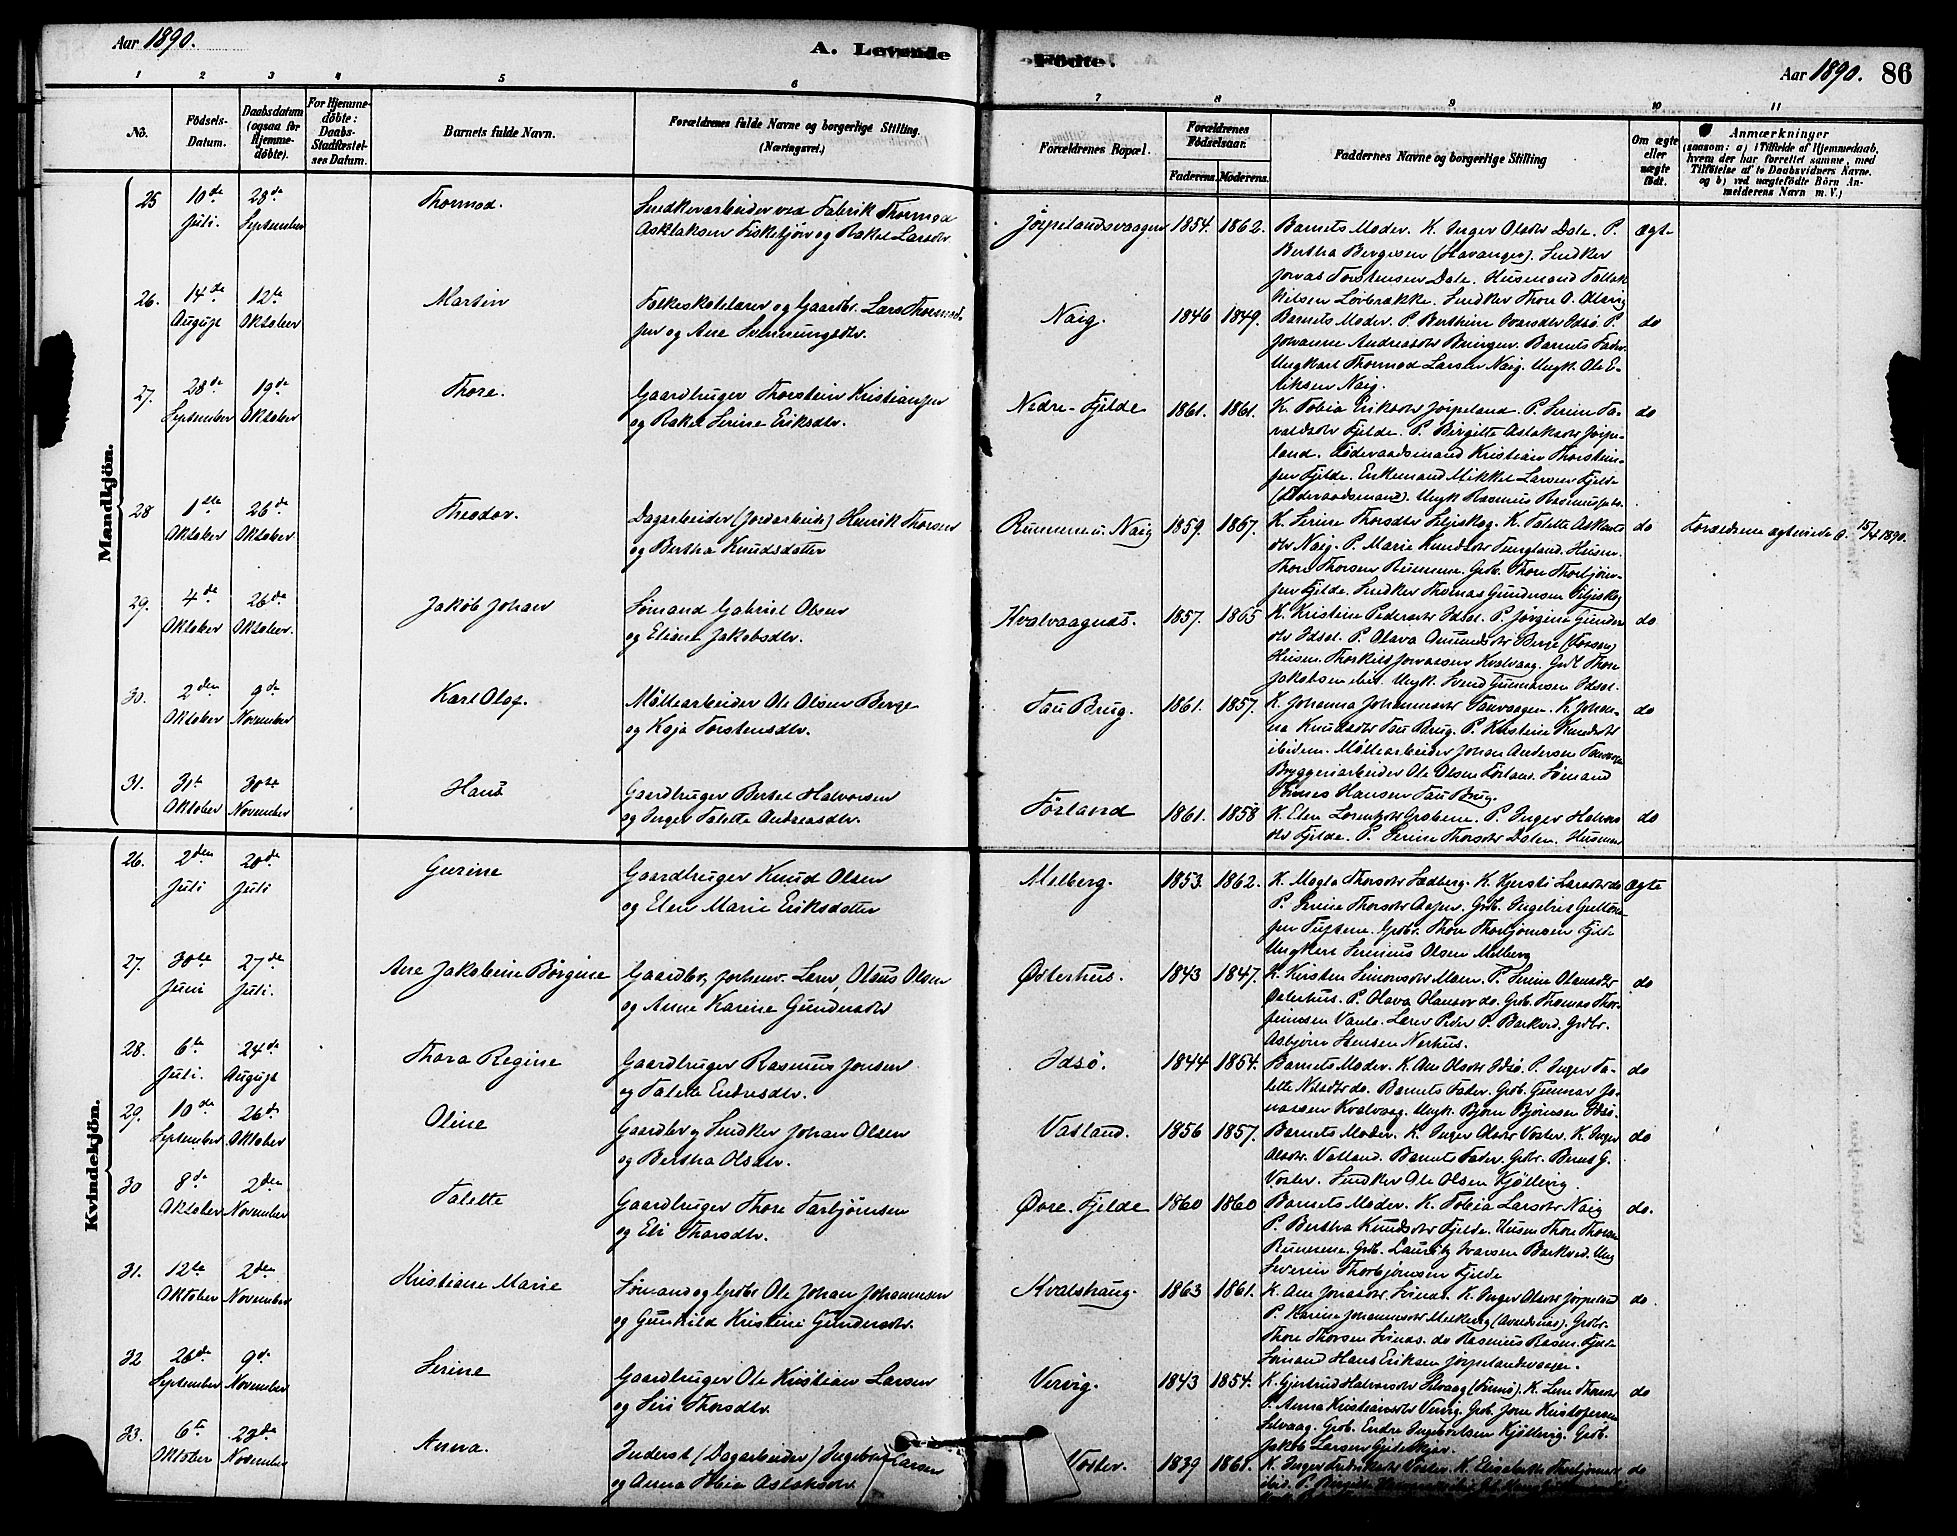 Aar 1890.
A. Levende
Fødte.
Aar 1890.
86
1 2 3 4 5 6 7 8 9 10 11
No.
Fødsels-
Datum.
Daabsdatum
(ogsaa for
Hjemme-
døbte).
For Hjemme-
døbte:
Daabs-
Stadfæstel-
ses Datum.
Barnets fulde Navn.
Forældrenes fulde Navne og borgerlige Stilling.
(Næringsvei.)
Forældrenes Bopæl.
Forældrenes
Fødselsaar.
Faderens. Moderens.
Faddernes Navne og borgerlige Stilling
Om ægte
eller
uægte
født.
Anmærkninger
(saasom: a) i Tilfælde af Hjemmedaab,
hvem der har forrettet samme, med
Tilføielse af to Daabsvidners Navne.
og b) ved uægtefødte Börn An-
melderens Navn m. V.)
Mandkjön.
25 10de Juli. 28de September
Thormod.
Snedkerarbeider ved Fabrik Thormod
Aslaksen Fisketjøn og Rakel Larsdtr.
Jørpelandsvaagen 1854. 1862.
Barnets Moder. K. Inger Olsdtr Dale. P.
Bertha Bergesen (Stavanger). Snedker
Jonas Torstensen Dale. Husmand Tollak
Nilsen Løvbrække. Snedker Thore O.
Ægte
26. 14de August 12te Oktober
Martin
Folkeskolelærer og Gaardbr. Lars Thormod-
sen og Ane Svenningsdtr.
Naig. 1846 1849.
Barnets Moder. P. Berthine Ivarsdtr Idsö. P.
Johanne Andreasdtr Bringen. Barnets Fader.
Ungkarl Thormod Larsen Naig. Ungk. Ole E-
riksen Naig.
do
27. 28de September 19de Oktober
Thore.
Gaardbruger Thorstein Kristiansen
og Rakel Serine Eriksdtr.
Nedre-Fjelde 1861. 1861.
K. Tobia Eriksdtr Jørpeland. P. Serine Ta-
raldsdtr Fjelde. P. Birgitte Aslaksdtr Jørpe-
land. Föderaadsmand Kristian Thorstein-
sen Fjelde. Enkemand Mikkel Larsen Fjelde
(Föderaadsmand). Ungk Rasmus
do
28 1ste Oktober 26de Oktober
Theodor.
Dagarbeider (Jordarbeide) Henrik Thorsen
og Bertha Knudsdatter
Rummene u. Naig 1859. 1867.
K. Serine Thorsdtr Seljeskog. K. Talette
dtr Naig. P. Marie Knudsdtr Tungland. Husm.
Thore Thorsen Rummene. Grdb. Thore Thorbjörn-
sen Fjelde. Snedker Thomas Gundersen Seljeskog
do
Forældrene ægteviede d. 15/4 1890.
29. 4de Oktober 26de Oktober.
Jakob Johan
Sömand Gabriel Olsen
og Eliane Jakobsdtr.
Kvalvaagnæs. 1857. 1865
K. Kristine Pedersdtr Idsal. P. Jørgine Gunders
dtr Idsal. P. Olava Amundsdtr Berge (Fossan)
Husm. Thorkild Jonassen Kvalvaag. Grdb Thore
Jakobsen ibid. Ungk. Svend Gunnarsen Idsal.
do
30. 2den Oktober 9de November
Karl Olaf.
Möllearbeider Ole Olsen Berge
og Kaja Torstensdtr.
Tau Brug. 1861. 1857.
K. Johanna Johannesdtr Tauvaagen. K. Johan-
na Knudsdtr Tau Brug. P. Kristine Knudsdtr
ibidem. Möllearbeider Johan Andersen Tauvaagen
Bryggeriarbeider Ole Olsen Førland. Sömand
Tönnes Hansen Tau Brug.
do
31. 31te Oktober 30te November
Hans
Gaardbruger Bertel Halvorsen
og Inger Talette Andreasdtr.
Förland 1861. 1858
K. Elen Lorentsdtr Grobene. P. Inger Halvors
dtr Fjelde. P. Serine Thorsdtr Dalen. Husmm
do
Kvindekjön.
26. 2den Juli 20de Juli
Gurine
Gaardbruger Knud Olsen
og Elen Marie Eriksdatter
Melberg. 1853. 1862.
K. Magla Thorsdtr Sedberg. K. Kjersti Larsdtr do
P. Serine Thorsdtr Aasen. Grdb. Ingebret
sen Tuftene. Grdbr. Thore Thorbjörnsen Fjelde
Ungkarl Serinius Olsen Melberg
Ægte
27. 30te Juni 27de Juli.
Ane Jakobine Børgine
Gaardbr., forhenv. Lærer, Olaus Olsen
og Anne Karine Gundersdtr
Østerhus. 1843 1847.
K. Kirsten Simonsdtr Meen. P. Serine Olausdtr
Østerhus. P. Olava Olausdtr do. Grdb. Thomas Thor-
Lærer Peder P. Barkved. Grdbr.
Asbjörn Hansen Nerhus.
do
28. 6te Juli. 24de August
Thora Regine
Gaardbruger Rasmus Jonsen
og Talette Endresdtr.
Idsö. 1844 1854.
Barnets Moder. K. Ane Olsdtr Idsö. P. Inger Ta-
lette Nilsdtr do. Barnets Fader. Grdb. Gunnar Jo-
nassen Kvalvaag. Ungk. Bjørn Bjørnsen Idsö.
do
29. 10de September 26de Oktober
Oline
Gaardbr og Snedker Johan Olsen
og Bertha Olsdtr.
Vatland. 1856 1857.
Barnets Moder. K. Inger Olsdtr Voster. K. Inger
Olsdtr Vatland. Barnets Fader. Grdbr. Bernt G.
Voster. Snedker Ole Olsen Kjöllevig.
do
30 8de Oktober 2den November
Talette
Gaardbruger Thore Torbjörnsen
og Eli Thorsdtr.
Øvre-Fjelde 1860 1860
Barnets Moder. K. Tobia Larsdtr Naig
P. Bertha Knudsdtr Fjelde. Husm Thore Thorsen
Rummene. Grdb. Lauritz Ivarsen Barkved. Ung
Severin Thorbjørnsen Fjelde
do.
31. 12te Oktober 2den November
Kristiane Marie
Sömand og Grdbr Ole Johan Johannesen
og Gunhild Kristine Gundersdtr.
Kvalshaug. 1863 1861.
K. Ane Jonasdtr K. Inger Olsdtr Jørpeland
P. Karine Johannesdtr Melberg Grdbr.
Thore Thorsen do Rasmus Rasm. Fjelde
Sömand Hans Eriksen Jørpelandsvaagen.
do
32 26de September 9de November
Serine
Gaardbruger Ole Kristian Larsen
og Siri Thorsdtr.
Vervig. 1843 1854.
K. Gjertrud Halvorsdtr Selvaag K. Lene Thorsdtr
P. Anna Kristiansdtr Vervig. Grdb. Jone Kristofersen
Selvaag. Grdb. Endre Ingebretsen Kjöllevig. Grdb.
Jakob Larsen
do
33. 6te Oktober 23de November
Anna.
Inderst (Dagarbeider) Ingebret Larsen
og Anna Tobia Aslaksdtr.
Voster. 1839 1861.
K. Inger Voster. K. Elisabeth
do